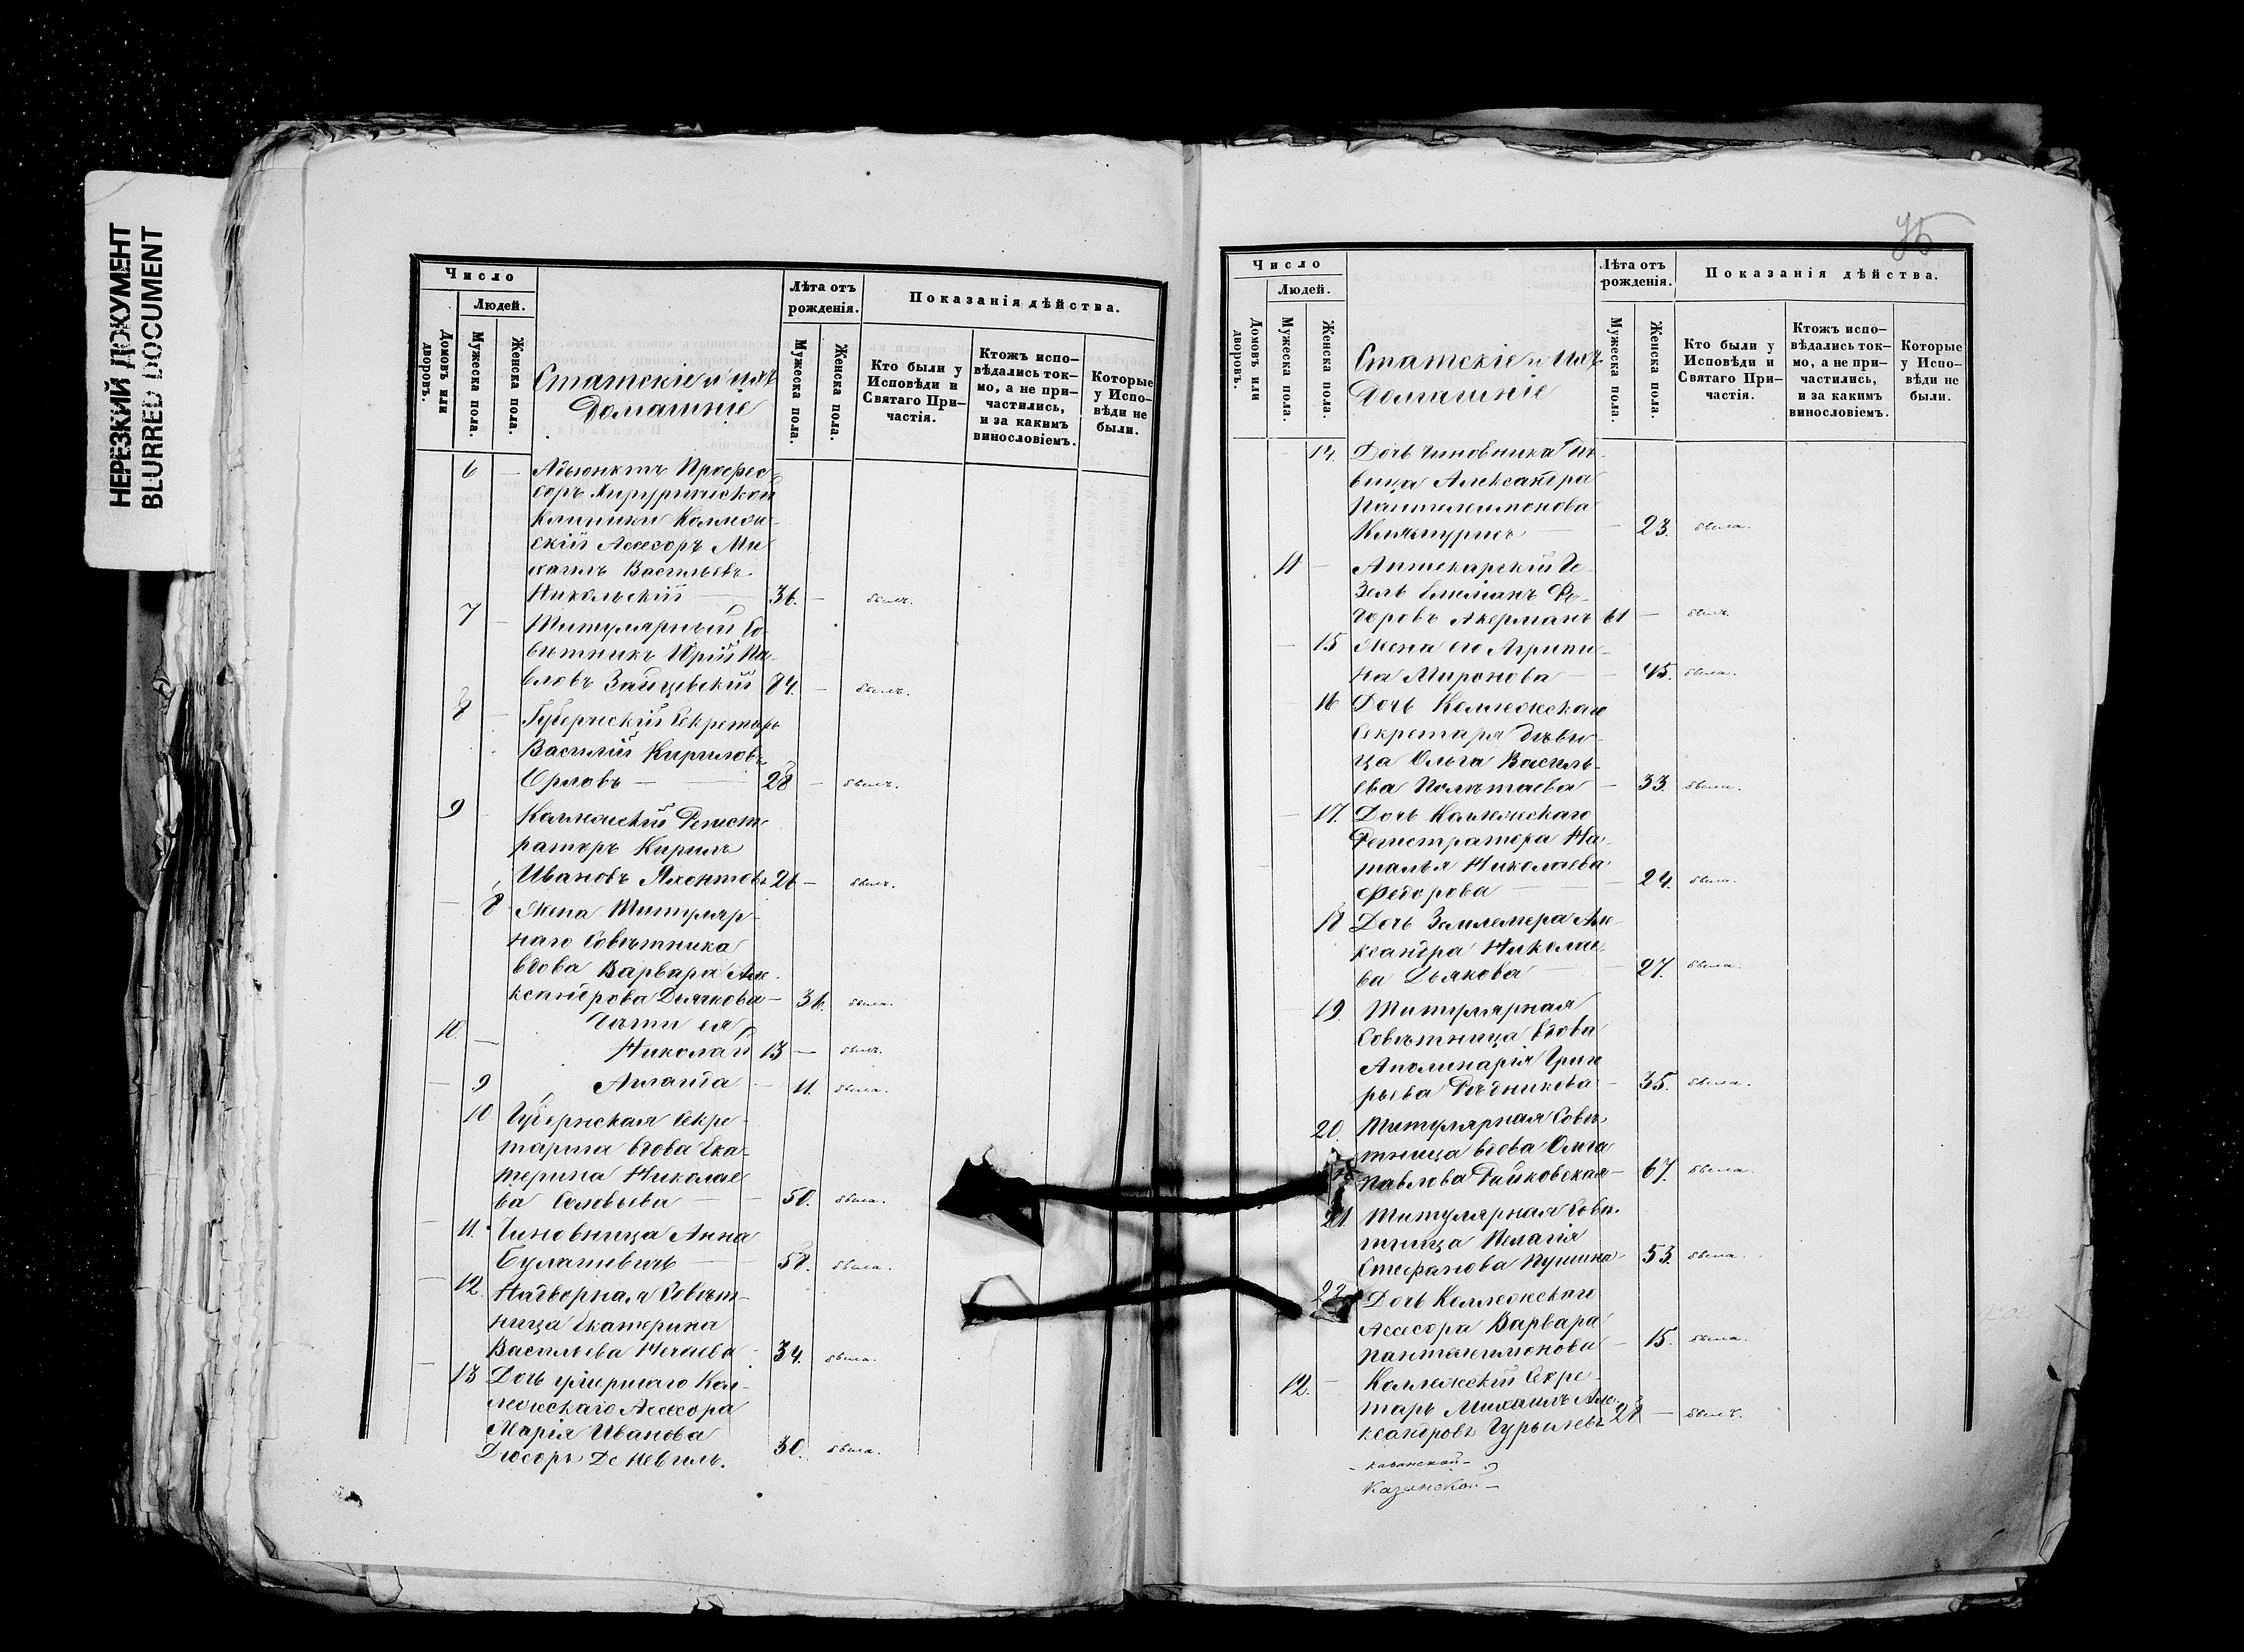 НЕРЕЗКИЙ ДОКУМЕНТ
BLURRED DOCUMENT
Число
Людей.
Домовъ или дворовъ.
Мужеска пола.
Женска пола.
Статскіе и ихъ
Домашніе
Лѣта отъ рожденія.
Мужеска пола.
Женска пола.
Показанія дѣйства.
Кто были у Исповѣди и Святаго Причастія.
Ктожъ исповѣдались токмо, а не причастились, и за какимъ винословіемъ.
Которые у Исповѣди не были.
6 — Адьюнктъ Профес-
соръ Хирургической
Клиники Коллеж-
скій Ассесоръ Ми
хаилъ Васильевъ
Никольскій — 36. — былъ.
7 — Титулярный Со-
вѣтникъ Юрій Па-
вловъ Зайцевскій 84. — былъ.
8 — Губернскій Секретарь
Василій Кириловъ
Орловъ — 28 — былъ.
9 Коллежскій Регист-
раторъ Кирилъ
Ивановъ Яхонтовъ 26 — былъ.
— 8 Жена Титуляр-
наго Совѣтника
вдова Варвара Але-
ксандрова Дьячкова — 36. была.
10. — Дѣти ея
Николай 13 — былъ.
— 9 — 11. была.
10 Губернская Секре-
тарша вдова Ека-
терина Николае
ва Соловьева — 50. была.
— 11. Чиновница Анна
Булашевичъ — 58. была.
— 12. Надворная Совѣт-
ница Екатерина
Васильева Нечаева — 34. была.
— 13 Дочь умершаго Кол-
лежскаго Ассесора
Марія Иванова
Дюсоръ Де Невиль. 30. была.
Число
Людей.
Домовъ или дворовъ.
Мужеска пола.
Женска пола.
Статскіе и ихъ
Домашніе
Лѣта отъ рожденія.
Мужеска пола.
Женска пола.
Показанія дѣйства.
Кто были у Исповѣди и Святаго Причастія.
Ктожъ исповѣдались токмо, а не причастились, и за какимъ винословіемъ.
Которые у Исповѣди не были.
— 14. Дочь чиновника Дѣ-
вица Александра
Пантелеимонова
— 23. была.
11 — Аптекарскій Ге-
зель Емиліанъ Фе-
доровъ Акерманъ 61 — былъ.
— 15 Жена его Агрипи-
на Миронова — 45. была.
— 16 Дочь Коллежскаго
Секретаря дѣви-
ца Ольга Василь-
ева Полѣтаева — 33. была.
— 17. Дочь Коллежскаго
Регистратора На-
талья Николаева
Федорова — 24. была.
18 Дочь Землемера Але-
ксандра Николае-
ва Дьякова — 27. была.
19. Титулярная
Совѣтница вдова
Аполинарія Григо
рьева Рѣдникова — 35. была.
20. Титулярная Совѣ-
тница вдова Ольга
Павлова Райковская — 67. была.
21. Титулярная Совѣ-
тница Пелагія
Стефанова Пушкина — 53. была.
22. Дочь Коллежскаго
Ассесора Варвара
Пантелеимонова — 15. была.
12. — Коллежскій Секре-
тарь Михаилъ Але-
ксандровъ Гурылевъ 28 — былъ.
Казанской —
Казанской —